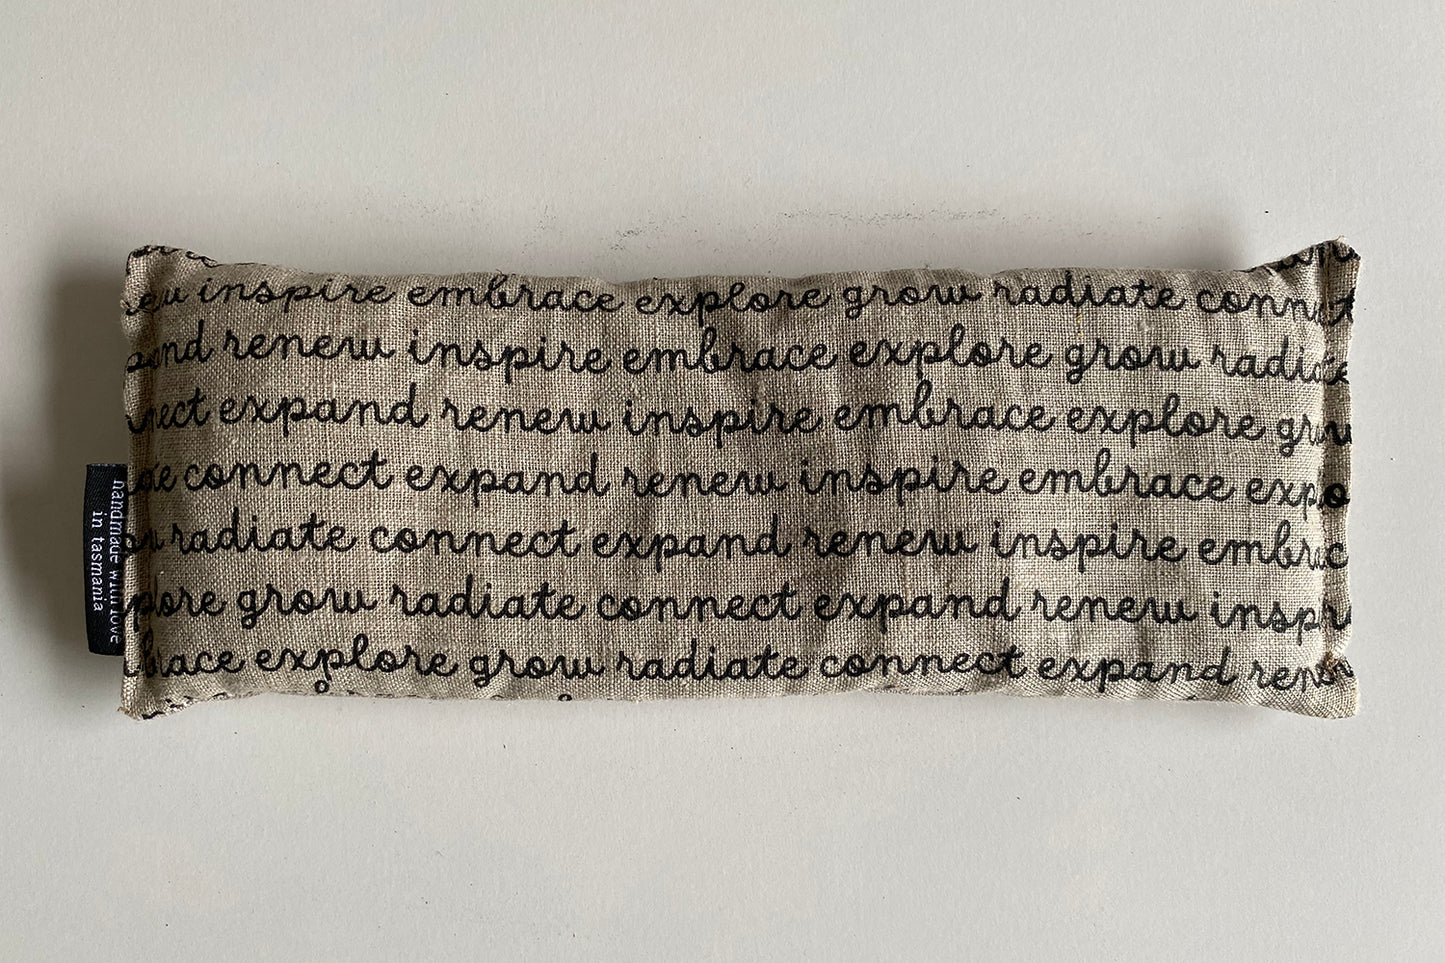 inspire embrace explore grow radiate connect
renew inspire embrace explore grow radiate
expand renew inspire embrace explore
connect expand renew inspire embrace
radiate connect expand renew inspire
grow radiate connect expand renew
explore grow radiate connect expand
handmade with love
in tasmania